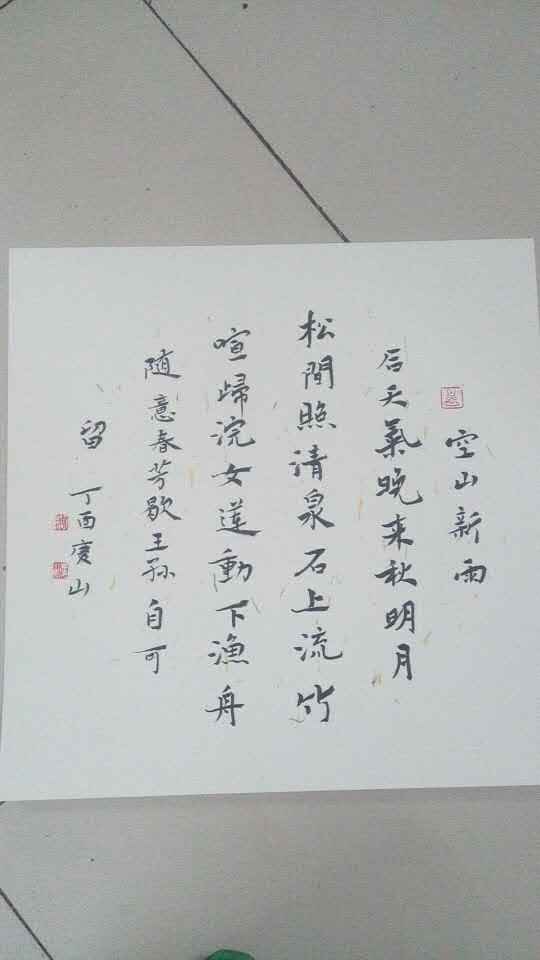 空山新雨
后天氣晚来秋明月
松間照清泉石上流竹
喧歸浣女蓮動下漁舟
随意春芳歇王孫自可
留 丁酉慶山